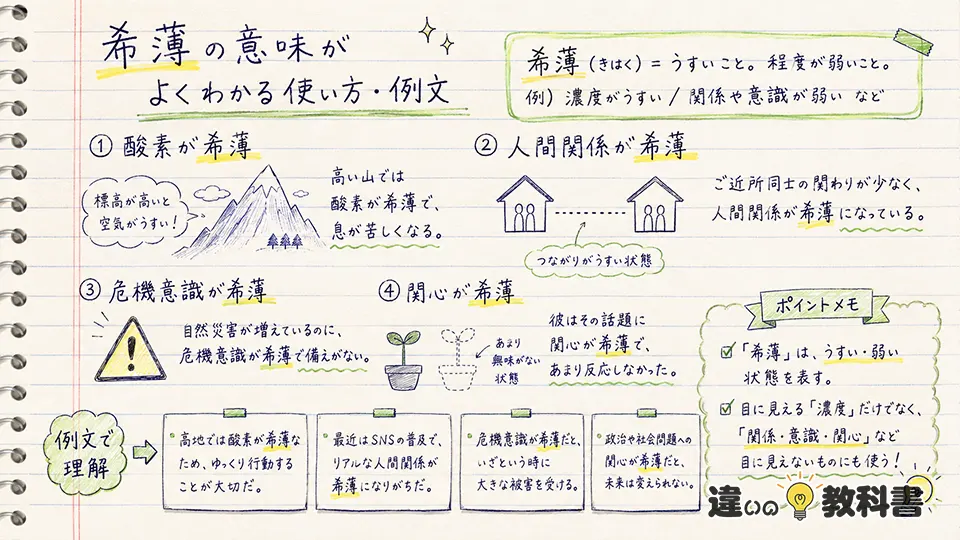 希薄の意味が
よくわかる使い方・例文
希薄(きはく)= うすいこと。程度が弱いこと。
例)濃度がうすい / 関係や意識が弱い など
① 酸素が希薄
標高が高いと
空気がうすい!
高い山では
酸素が希薄で、
息が苦しくなる。
② 人間関係が希薄
ご近所同士の関わりが少なく、
人間関係が希薄になっている。
つながりがうすい状態
③ 危機意識が希薄
自然災害が増えているのに、
危機意識が希薄で備えがない。
④ 関心が希薄
あまり
興味がない
状態
彼はその話題に
関心が希薄で、
あまり反応しなかった。
ポイントメモ
「希薄」は、うすい・弱い
状態を表す。
目に見える「濃度」だけでなく、
「関係・意識・関心」など
目に見えないものにも使う!
例文で
理解
高地では酸素が希薄な
ため、ゆっくり行動する
ことが大切だ。
最近はSNSの普及で、
リアルな人間関係が
希薄になりがちだ。
危機意識が希薄だと、
いざという時に
大きな被害を受ける。
政治や社会問題への
関心が希薄だと、
未来は変えられない。
違いの教科書